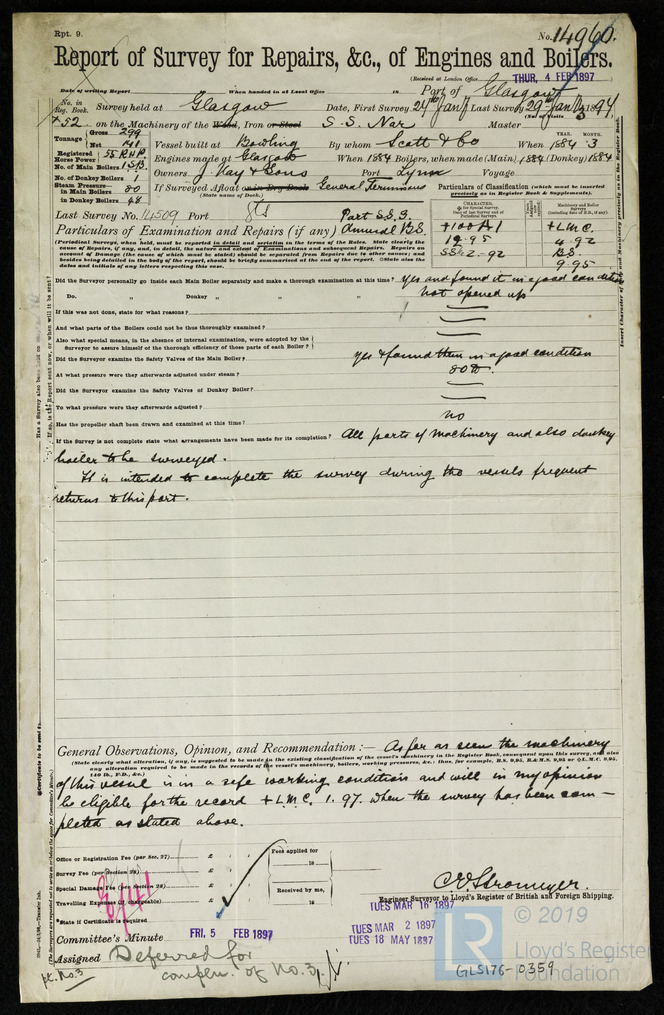 Rpt. 9.
No. 14960.
Report of Survey for Repairs, &c., of Engines and Boilers.
(Received at London Office THUR, 4 FEB 1897)
Date of writing Report When handed in at Local Office in Port of Glasgow
No. in Reg. Book. Survey held at Glasgow Date, First Survey 24th Jan Last Survey 29th Jan 1897
(No. of Visits 3)
+52 on the Machinery of the Wood, Iron or Steel S. S. Nar Master
Tonnage Gross 299
Net 141
Vessel built at Bowling By whom Scott & Co When 1884 3
YEAR. MONTH.
Registered Horse Power 55 R.H.P. Engines made at Glasgow When 1884 Boilers, when made (Main) 1884 (Donkey) 1884
No. of Main Boilers 1 S.B. Owners J. Hay & Sons Port Lynn Voyage
No. of Donkey Boilers 1
Steam Pressure in Main Boilers 80
in Donkey Boilers 48
If Surveyed Afloat or in Dry Dock General Terminus
(State name of Dock.)
Particulars of Classification (which must be inserted precisely as in Register Book & Supplements).
Last Survey No. 14509 Port Gls Part S.S. 3.
Particulars of Examination and Repairs (if any) Annual B.S.
CHARACTER.
Machinery and Boiler Surveys (including date of N.B., if any).
+100A1 +L.M.C.
12.95 4.92
B.S.
9.95
(Periodical Surveys, when held, must be reported in detail and seriatim in the terms of the Rules. State clearly the cause of Repairs, if any, and, in detail, the nature and extent of Examinations and subsequent Repairs. Repairs on account of Damage (the cause of which must be stated) should be separated from Repairs due to other causes; and besides being detailed in the body of the report, should be briefly summarised at the end of the report. State also the dates and initials of any letters respecting this case.
Did the Surveyor personally go inside each Main Boiler separately and make a thorough examination at this time? Yes and found it in a good condition
Do. „ Donkey „ „ „ Not opened up
If this was not done, state for what reasons?
And what parts of the Boilers could not be thus thoroughly examined?
Also what special means, in the absence of internal examination, were adopted by the Surveyor to assure himself of the thorough efficiency of those parts of each Boiler?
Did the Surveyor examine the Safety Valves of the Main Boiler? Yes & found them in a good condition
At what pressure were they afterwards adjusted under steam? 80 lb.
Did the Surveyor examine the Safety Valves of Donkey Boiler?
To what pressure were they afterwards adjusted?
Has the propeller shaft been drawn and examined at this time? no
If the Survey is not complete state what arrangements have been made for its completion? All parts of machinery and also donkey
boiler to be surveyed.
It is intended to complete the survey during the vessels frequent
returns to this port.
General Observations, Opinion, and Recommendation:— As far as seen the machinery
(State clearly what alteration, if any, is suggested to be made in the existing classification of the vessel's machinery in the Register Book, consequent upon this survey, and also any alteration required to be made in the records of the vessel's machinery, boilers, working pressures, &c.; thus, for example, B.S. 9,95, B.&M.S. 9,95 or +L.M.C. 9,95, 140 lb., F.D., &c.)
of this vessel is in a safe working condition and will in my opinion
be eligible for the record + L.M.C. 1.97. when the survey has been com-
pleted as stated above.
Office or Registration Fee (per Sec. 27) £
Survey Fee (per Section 28) £
Special Damage Fee (per Section 28) £
Travelling Expenses (if chargeable) £
*State if Certificate is required
Fees applied for
18
Received by me,
18
C. E. Stromeyer.
Engineer Surveyor to Lloyd's Register of British and Foreign Shipping.
TUES MAR 16 1897
TUES MAR 2 1897
TUES 18 MAY 1897
Committee's Minute FRI. 5 FEB 1897
Assigned Deferred for
complen. of No. 3
pt. No. 3
LR © 2019
Lloyd's Register
Foundation
GLS176-0359